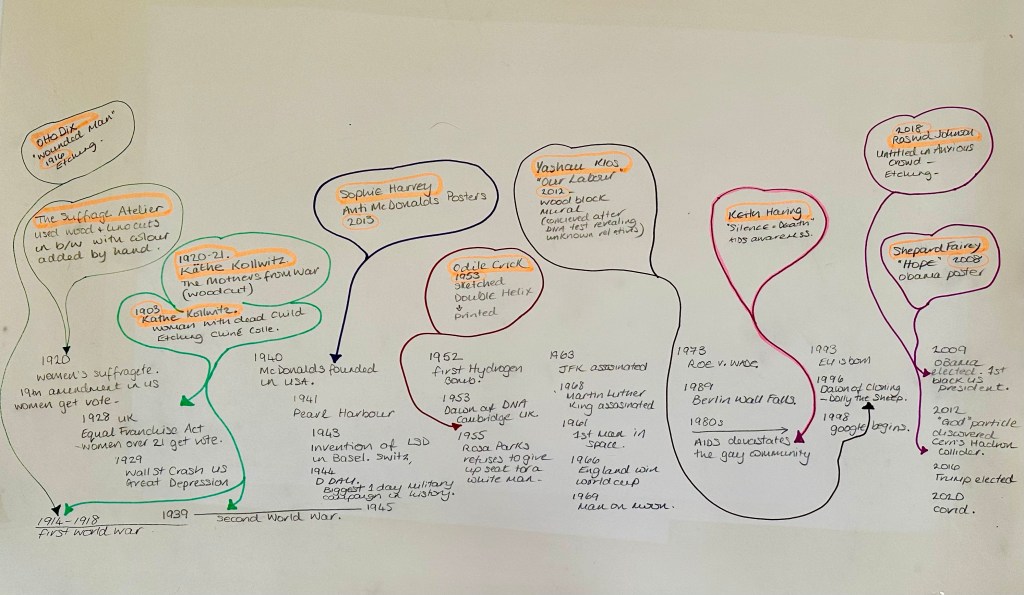 Otto Dix
"Wounded Man"
1916
Etching.
The Suffrage Atelier
used wood & lino cuts
in b/w with colour
added by hand.
1920-21.
Kathe Kollwitz
The Mothers from War
(woodcut)
1903
Kathe Kollwitz.
Woman with dead Child
Etching Chine Colle.
Sophie Harvey
Anti McDonalds Posters
2013
Odile Crick
1953
sketched
Double Helix
&
printed
Yashau Rios
"Our Labour"
2012 -
wood block
mural
(concieved after
DNA test revealing
unknown relatives)
Keith Haring
"Silence = Death"
Aids awareness.
2018
Rashid Johnson
Untitled in Anxious
Crowd -
Etching -
Shepard Fairey
"Hope" 2008
Obama poster
1920
Women's suffragete.
19th amendment in US
women get vote -
1928 UK
Equal Franchise Act
- women over 21 get vote.
1929
Wall St Crash US
Great Depression
1914-1918
first world war
1939
second World War.
1945
1940
McDonalds founded
in USA.
1941
Pearl Harbour
1943
Invention of LSD
in Basel. Switz,
1944
D DAY.
Biggest 1 day military
campaign in history.
1952
first Hydrogen
bomb.
1953
Dawn of DNA
Cambridge UK.
1955
Rosa Parks
refuses to give
up seat for a
white man -
1963
JFK assasinated
1968
Martin Luther
King assasinated
1961
1st Man in
space.
1966
England win
world cup
1969
Man on moon.
1973
Roe v. Wade.
1989
Berlin Wall Falls.
1980s
AIDS devastates
the gay community
1993
EU is born
1996
Dawn of cloning
- Dolly the Sheep.
1998
google begins.
2009
Obama
elected. 1st
black US
president.
2012
"God" particle
discovered
Cern's Hadron
Collider.
2016
Trump elected
2020
covid.